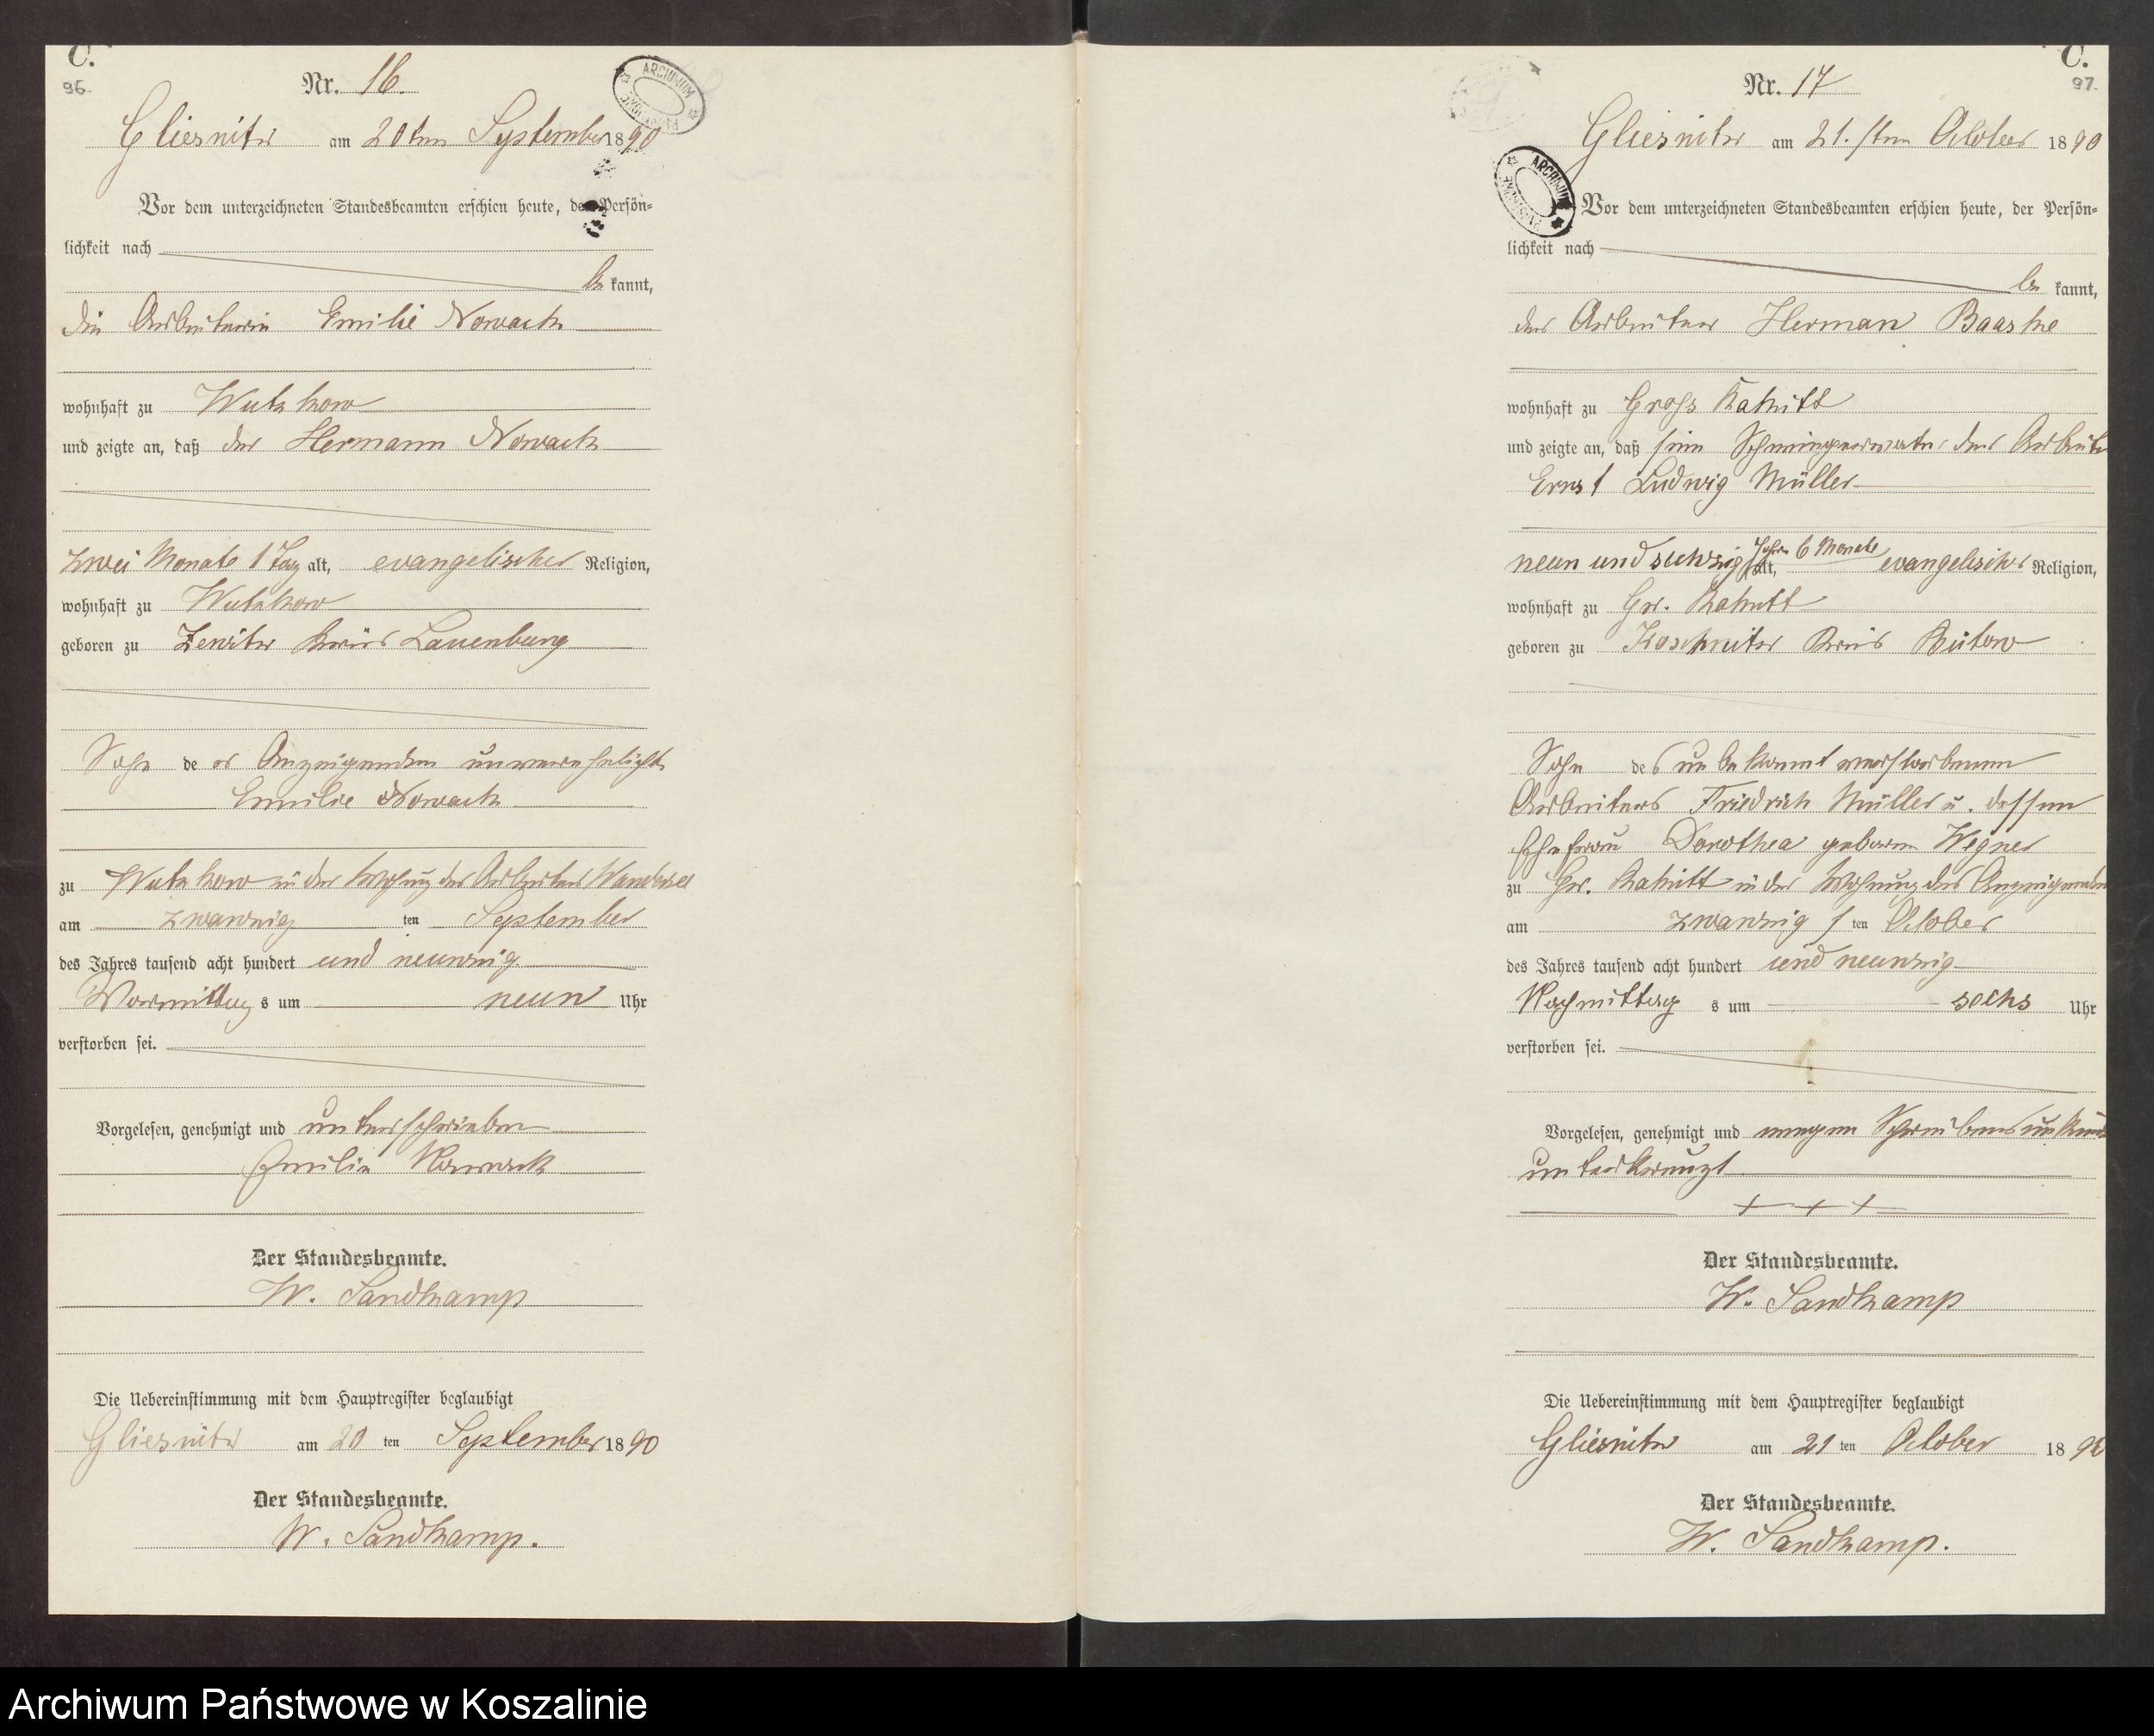 C.
96.
Nr. 16.
ARCHIWUM
Gliesnitz am 20ten September 1890
Vor dem unterzeichneten Standesbeamten erschien heute, der Persön-
lichkeit nach
be kannt,
die Arbeiterin Emilie Nowack
wohnhaft zu Wutzkow
und zeigte an, daß der Hermann Nowack
zwei Monate 1 Tag alt, evangelischer Religion,
wohnhaft zu Wutzkow
geboren zu Zewitz Kreis Lauenburg
Sohn de er Anzeigenden unverehelicht
Emilie Nowack
zu Wutzkow in der Wohnung des Arbeiters
am zwanzig ten September
des Jahres tausend acht hundert und neunzig
Vormittag s um neun Uhr
verstorben sei.
Vorgelesen, genehmigt und unterschrieben
Emilie Nowack
Der Standesbeamte.
W. Sandkamp
Die Uebereinstimmung mit dem Hauptregister beglaubigt
Gliesnitz am 20 ten September 1890
Der Standesbeamte.
W. Sandkamp.
C.
97.
Nr. 17
ARCHIWUM
Gliesnitz am 21.sten October 1890
Vor dem unterzeichneten Standesbeamten erschien heute, der Persön-
lichkeit nach
be kannt,
der Arbeiter Herman Baaske
wohnhaft zu Gross Rakitt
und zeigte an, daß sein Schwiegervater der Arbeite
Ernst Ludwig Müller
neun und sechzig Jahre 6 Monate alt, evangelischer Religion,
wohnhaft zu Gr. Rakitt
geboren zu Kreis Bütow
Sohn des unbekannt verstorbenen
Arbeiters Friedrich Müller u. dessen
Ehefrau Dorothea geboren Wegner
zu Gr. Rakitt in der Wohnung des Anzeigenden
am zwanzig s ten October
des Jahres tausend acht hundert und neunzig
Nachmittag s um sechs Uhr
verstorben sei.
Vorgelesen, genehmigt und wegen Schreibensunkund
unterkreuzt
+ + +
Der Standesbeamte.
W. Sandkamp
Die Uebereinstimmung mit dem Hauptregister beglaubigt
Gliesnitz am 21 ten October 1890
Der Standesbeamte.
W. Sandkamp.
Archiwum Państwowe w Koszalinie